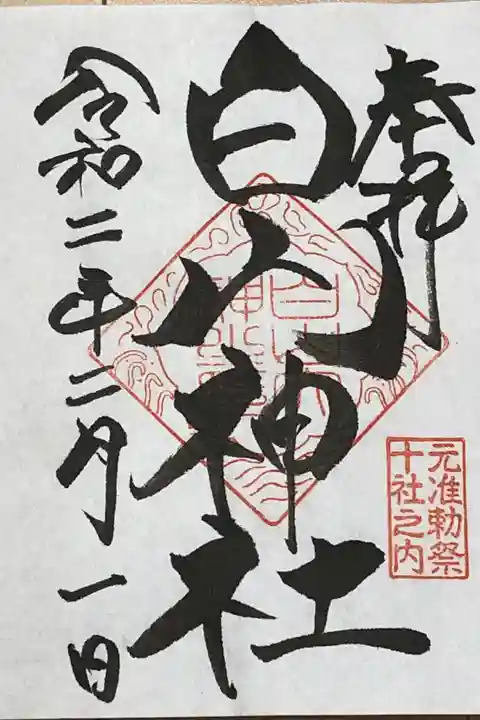 奉拝
元准勅祭
十社之内
白山神社
令和二年二月一日